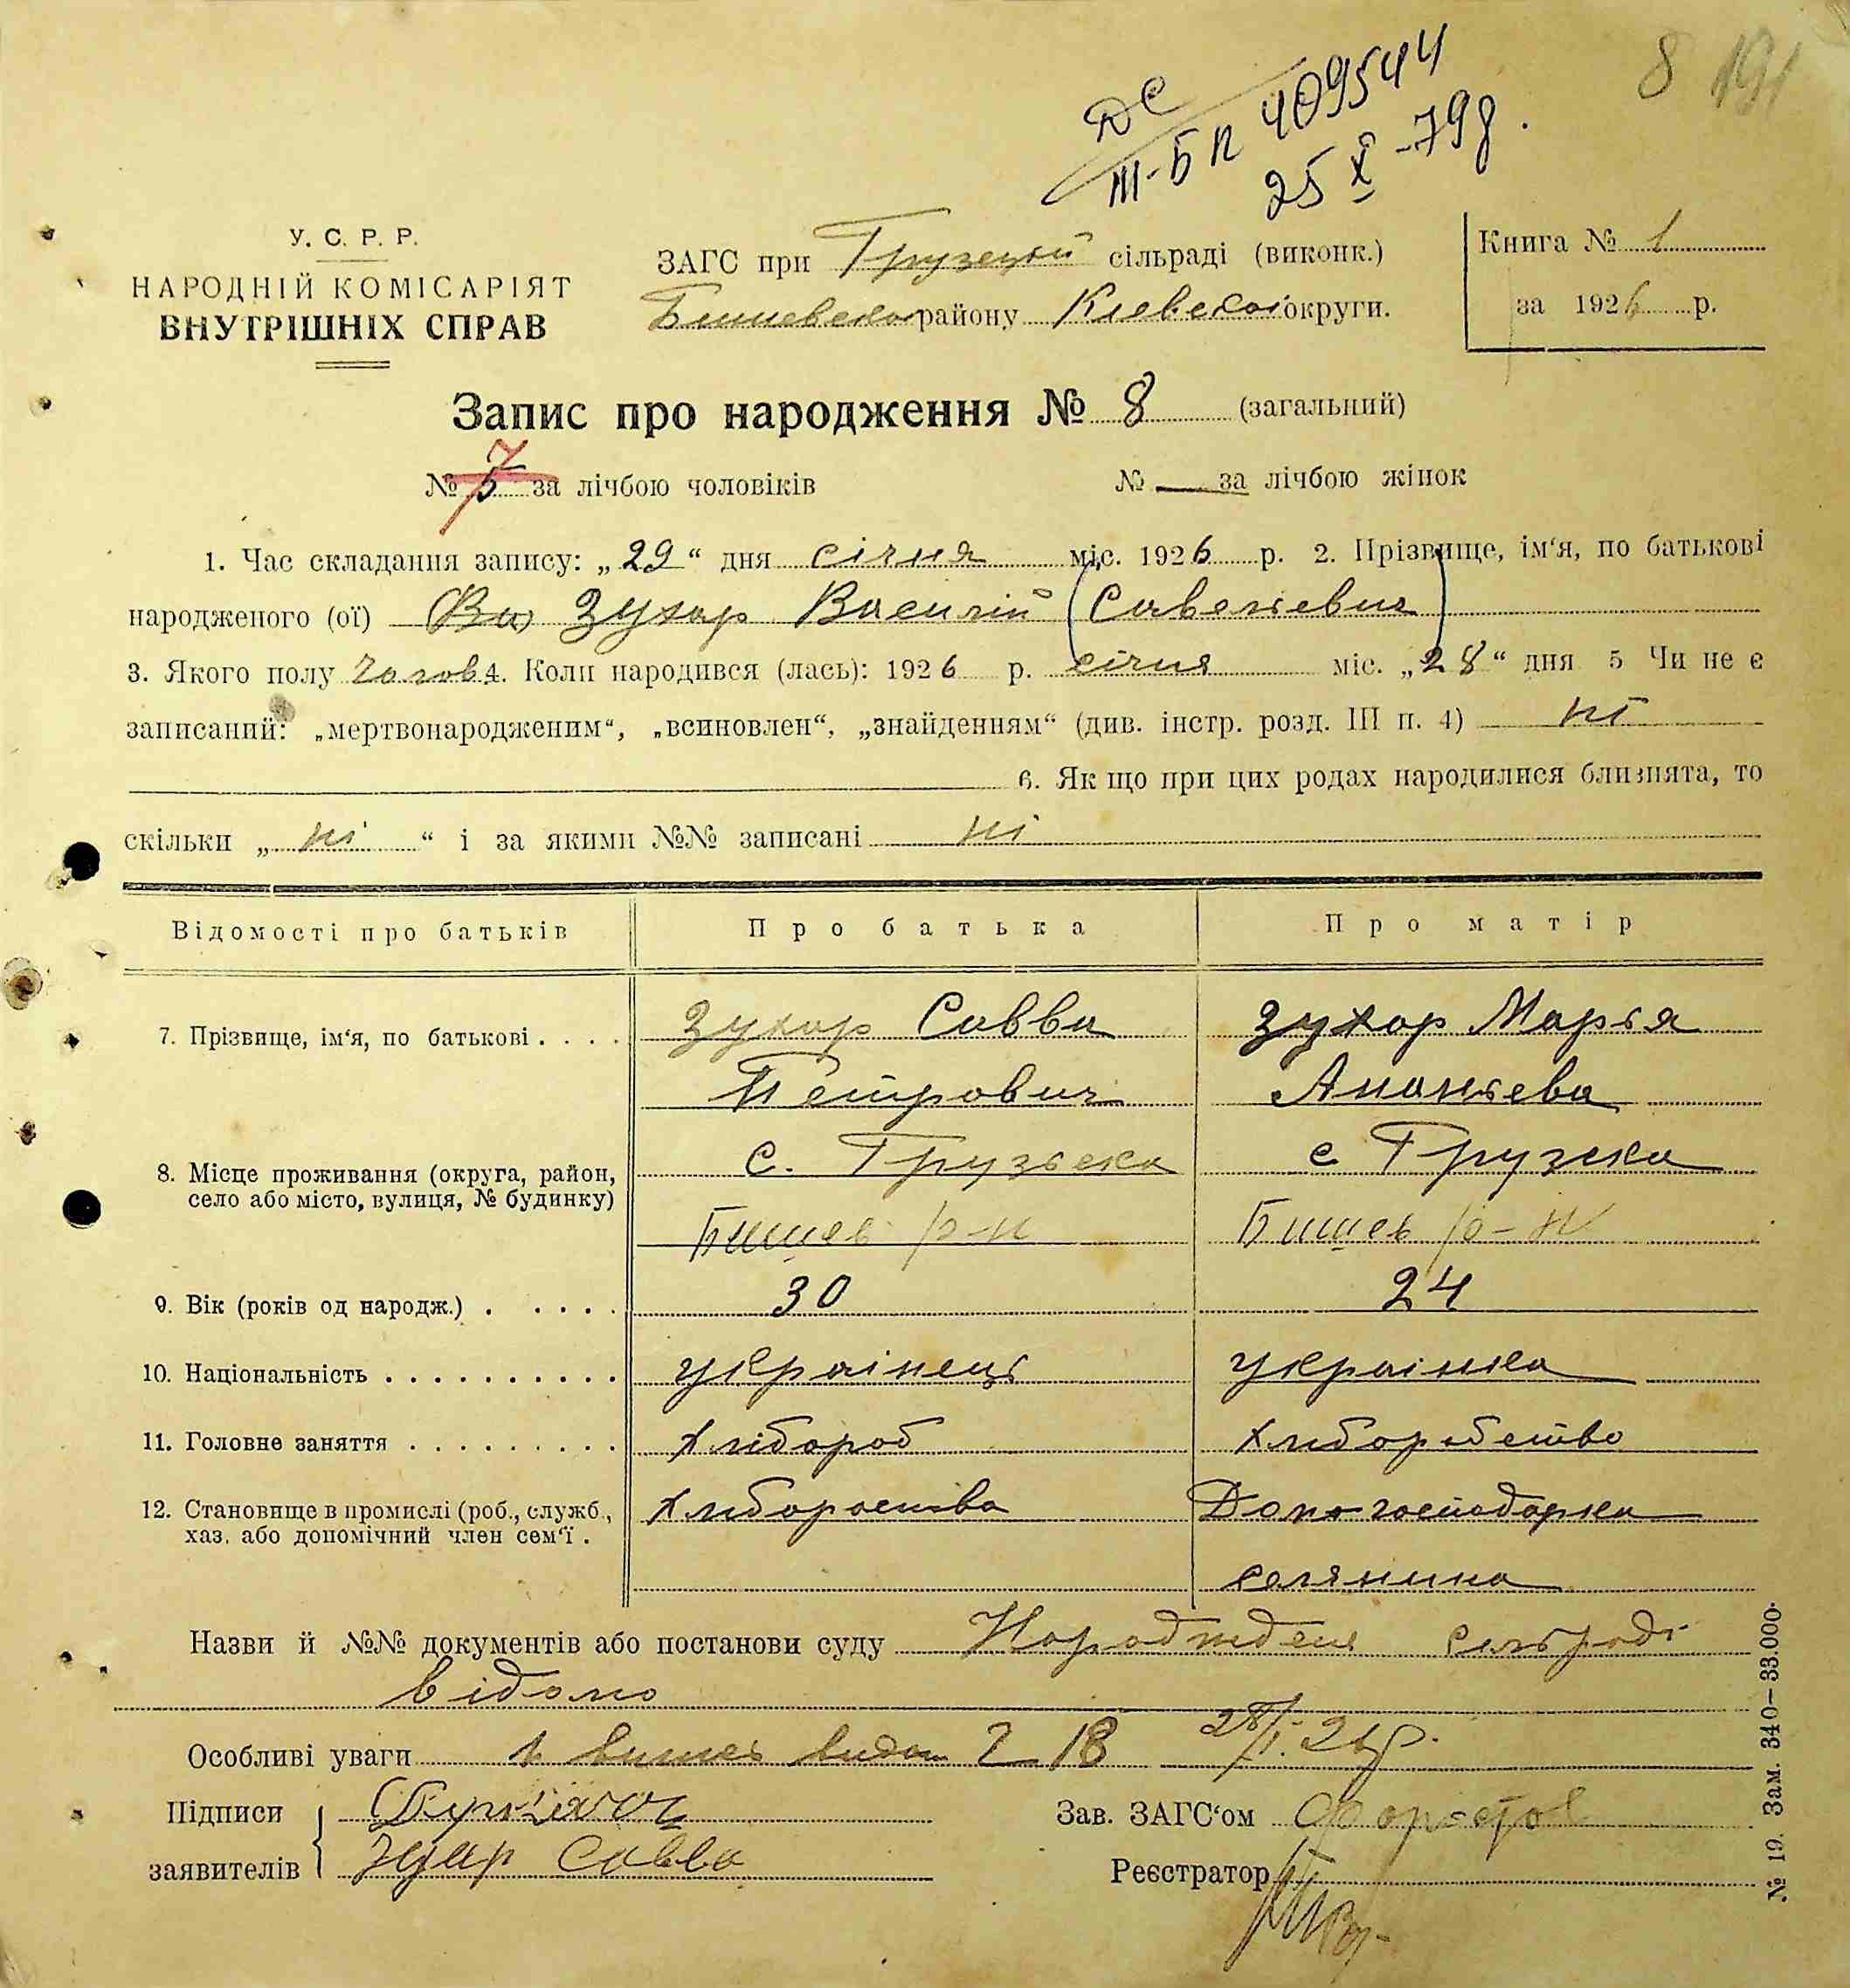 8 191
ДС
III-БК 409544
25 X -79р.
У. С. Р. Р.
НАРОДНІЙ КОМІСАРІЯТ
ВНУТРІШНІХ СПРАВ
ЗАГС при Грузецкой сільраді (виконк.)
Бишевского району Киевской округи.
Книга № 1
за 1926 р.
Запис про народження № 8 (загальний)
№ 5 7 за лічбою чоловіків № — за лічбою жінок
1. Час складання запису: „29“ дня січня міс. 1926 р. 2. Прізвище, ім'я, по батькові
народженого (ої) Зухар Василій (Савелієвич)
3. Якого полу чолов 4. Коли народився (лась): 1926 р. січня міс. „28“ дня 5 Чи не є
записаний: „мертвонародженим“, „всиновлен“, „знайденням“ (див. інстр. розд. III п. 4) ні
6. Як що при цих родах народилися близнята, то
скільки „ ні “ і за якими №№ записані ні
Відомості про батьків Про батька Про матір
7. Прізвище, ім'я, по батькові . . . . Зухар Савва Зухар Марья
Петрович Ананьева
8. Місце проживання (округа, район, село або місто, вулиця, № будинку) с. Грузьска с Грузска
Бишев р-н Бишев р-н
9. Вік (років од народж.) . . . . . 30 24
10. Національність . . . . . . . . . . українець українка
11. Головне заняття . . . . . . . . . хлібороб хліборобство
12. Становище в промислі (роб., служб., хаз. або допомічний член сем'ї . Домогосподарка
селянина
Назви й №№ документів або постанови суду сільраді
відомо
Особливі уваги 18 28/I-26р.
Підписи
заявителів Зухар Савва
Зав. ЗАГС'ом
Реєстратор
№ 19. Зам. 340—33.000.